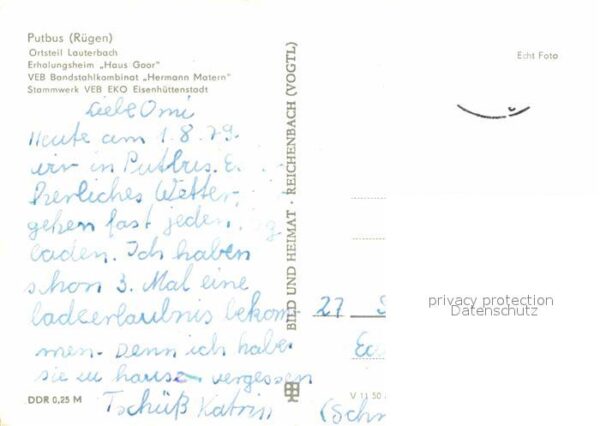 Putbus (Rügen)
Ortsteil Lauterbach
Erholungsheim „Haus Goor"
VEB Bandstahlkombinat „Hermann Matern"
Stammwerk VEB EKO Eisenhüttenstadt
Liebe Omi
Heute am 1.8.79.
wir in Putbus. E.
herliches Wetter,
gehen fast jeden
baden. Ich haben
schon 3. Mal eine
badeerlaubnis bekom
men. Denn ich habe
sie zu hause vergessen
Tschüß Katrin
DDR 0,25 M
BILD UND HEIMAT · REICHENBACH (VOGTL)
Echt Foto
27
privacy protection
Datenschutz
V 11 50
(Schm